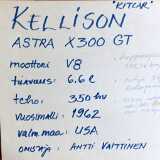 "KITCAR"
KELLISON
ASTRA X300 GT
moottori V8
tilavuus 6.6 l
teho 350 hv
vuosimalli 1962
valm.maa USA
omistaja ANTTI VAITTINEN